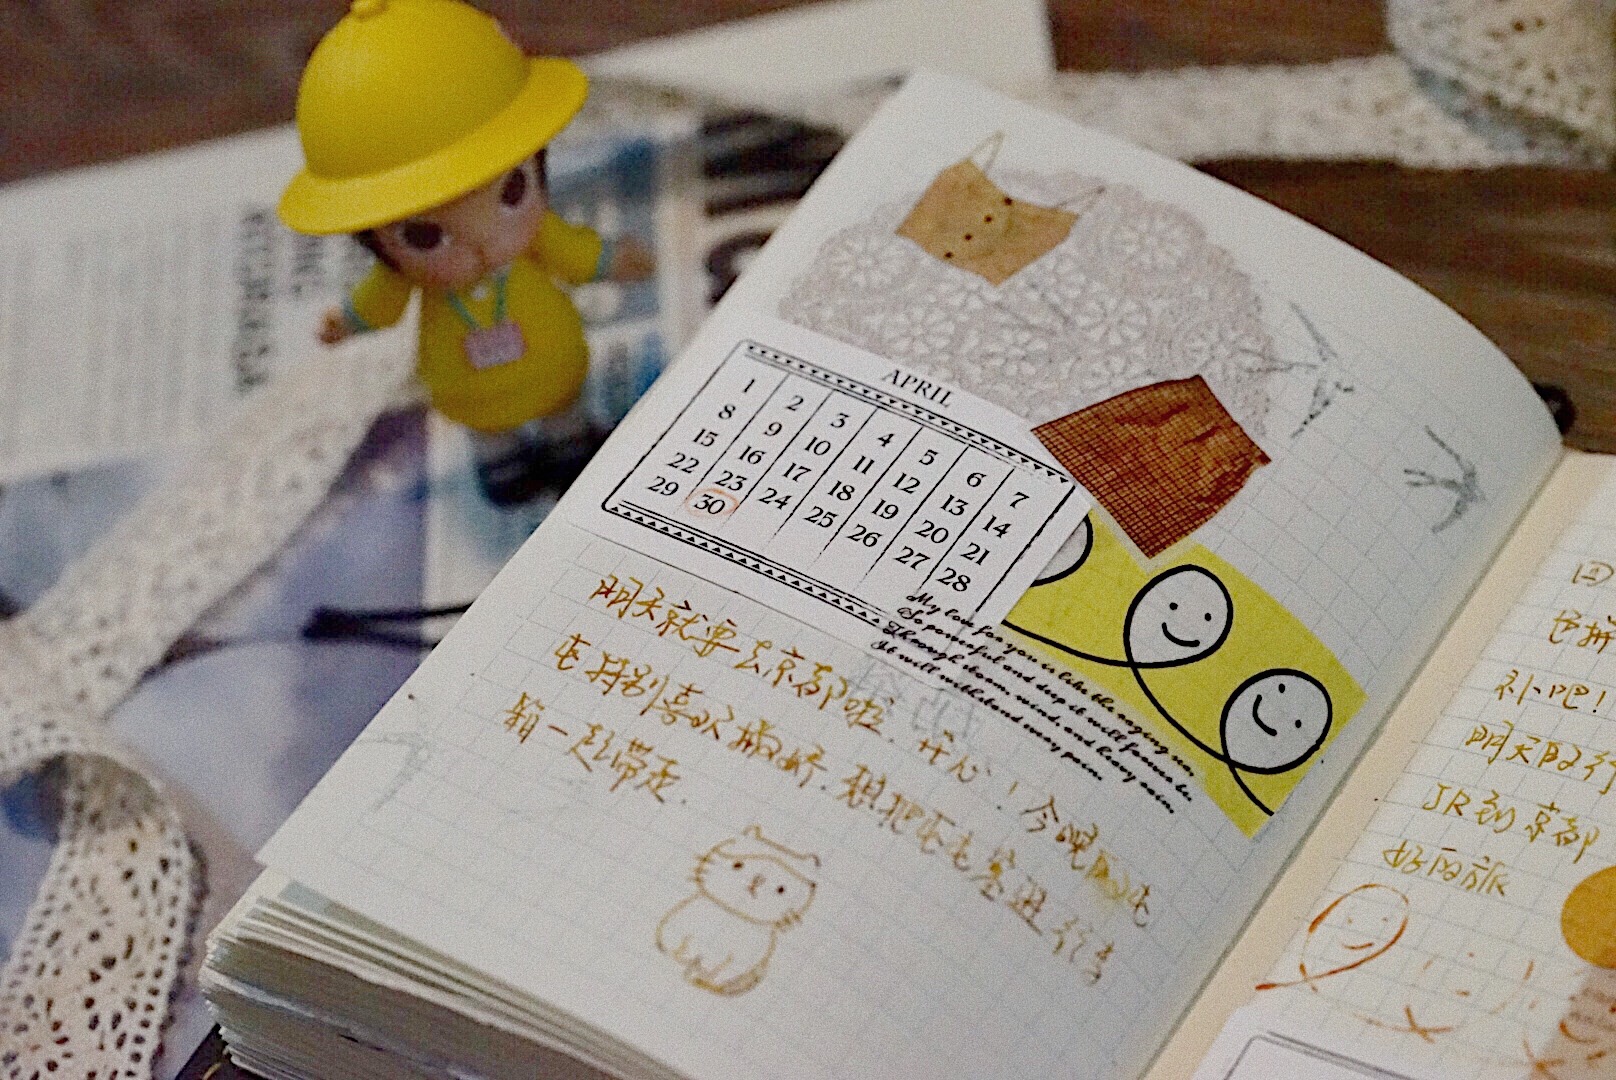 APRIL
1 2 3 4 5 6 7
8 9 10 11 12 13 14
15 16 17 18 19 20 21
22 23 24 25 26 27 28
29 30
My love for you is like the raging sea,
So powerful and deep it will forever be.
Through storm, wind, and heavy rain,
It will withstand every pain.
明天就要去京都啦.开心!今晚
特别喜欢撒娇.想把毛毛塞进行李
箱一起带走.
补吧!
明天
JR到京都